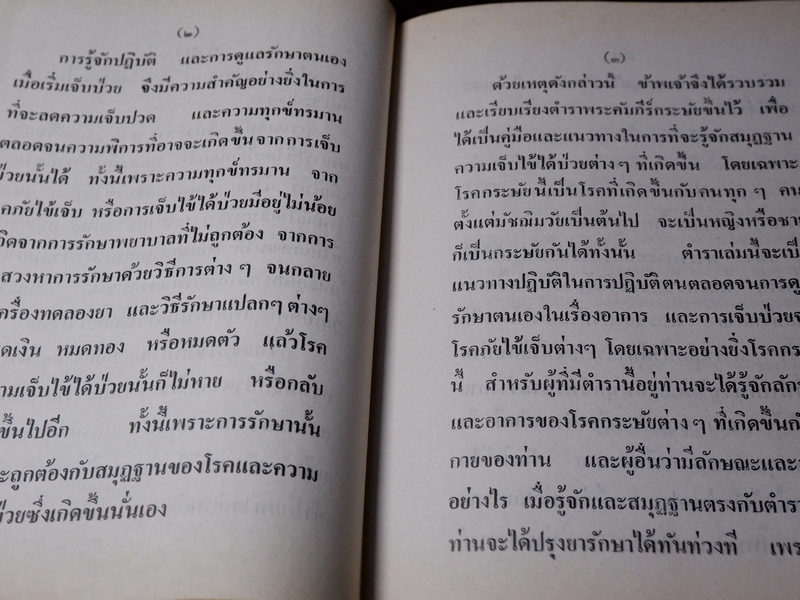 (๒)
การรู้จักปฏิบัติ และการดูแลรักษาตนเอง
เมื่อเริ่มเจ็บป่วย จึงมีความสำคัญอย่างยิ่งในการ
ที่จะลดความเจ็บปวด และความทุกข์ทรมาน
ตลอดจนความพิการที่อาจจะเกิดขึ้นจากการเจ็บ
ป่วยนั้นได้ ทั้งนี้เพราะความทุกข์ทรมาน จาก
โรคภัยไข้เจ็บ หรือการเจ็บไข้ได้ป่วยมีอยู่ไม่น้อย
เกิดจากการรักษาพยาบาลที่ไม่ถูกต้อง จากการ
แสวงหาการรักษาด้วยวิธีการต่าง ๆ จนกลาย
เครื่องทดลองยา และวิธีรักษาแปลกๆ ต่างๆ
หมดเงิน หมดทอง หรือหมดตัว แล้วโรค
ความเจ็บไข้ได้ป่วยนั้นก็ไม่หาย หรือกลับ
ขึ้นไปอีก ทั้งนี้เพราะการรักษานั้น
ถูกต้องกับสมุฏฐานของโรคและความ
ป่วยซึ่งเกิดขึ้นนั่นเอง
(๓)
ด้วยเหตุดังกล่าวนี้ ข้าพเจ้าจึงได้รวบรวม
และเรียบเรียงตำราพระคัมภีร์กระษัยขึ้นไว้ เพื่อ
ได้เป็นคู่มือและแนวทางในการที่จะรู้จักสมุฏฐาน
ความเจ็บไข้ได้ป่วยต่าง ๆ ที่เกิดขึ้น โดยเฉพาะ
โรคกระษัยนี้เป็นโรคที่เกิดขึ้นกับคนทุก ๆ คน
ตั้งแต่มัชฌิมวัยเป็นต้นไป จะเป็นหญิงหรือชาย
ก็เป็นกระษัยกันได้ทั้งนั้น ตำราเล่มนี้จะเป็น
แนวทางปฏิบัติในการปฏิบัติตนตลอดจนการดู
รักษาตนเองในเรื่องอาการ และการเจ็บป่วย
โรคภัยไข้เจ็บต่างๆ โดยเฉพาะอย่างยิ่งโรคกระ
นี้ สำหรับผู้ที่มีตำรานี้อยู่ท่านจะได้รู้จักลัก
และอาการของโรคกระษัยต่าง ๆ ที่เกิดขึ้นกับ
กายของท่าน และผู้อื่นว่ามีลักษณะและ
อย่างไร เมื่อรู้จักและสมุฏฐานตรงกับตำรา
ท่านจะได้ปรุงยารักษาได้ทันท่วงที เพร